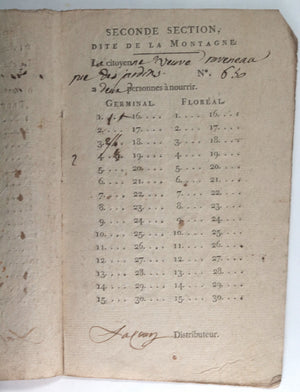 SECONDE SECTION,
DITE DE LA MONTAGNE
La citoyenne Veuve
rue des jardins N°. 650
a deux personnes à nourrir.
GERMINAL FLORÉAL
1. 16.... 1.... 16....
2.... 17.... 2.... 17....
3. 18.... 3.... 18....
4. 19.... 4.... 19....
5.... 20.... 5.... 20....
6.... 21.... 6.... 21....
7.... 22.... 7.... 22....
8.... 23.... 8.... 23....
9.... 24.... 9.... 24....
10.... 25.... 10.... 25....
11.... 26.... 11.... 26....
12.... 27.... 12.... 27....
13.... 28.... 13.... 28....
14.... 29.... 14.... 29....
15.... 30.... 15.... 30....
Distributeur.